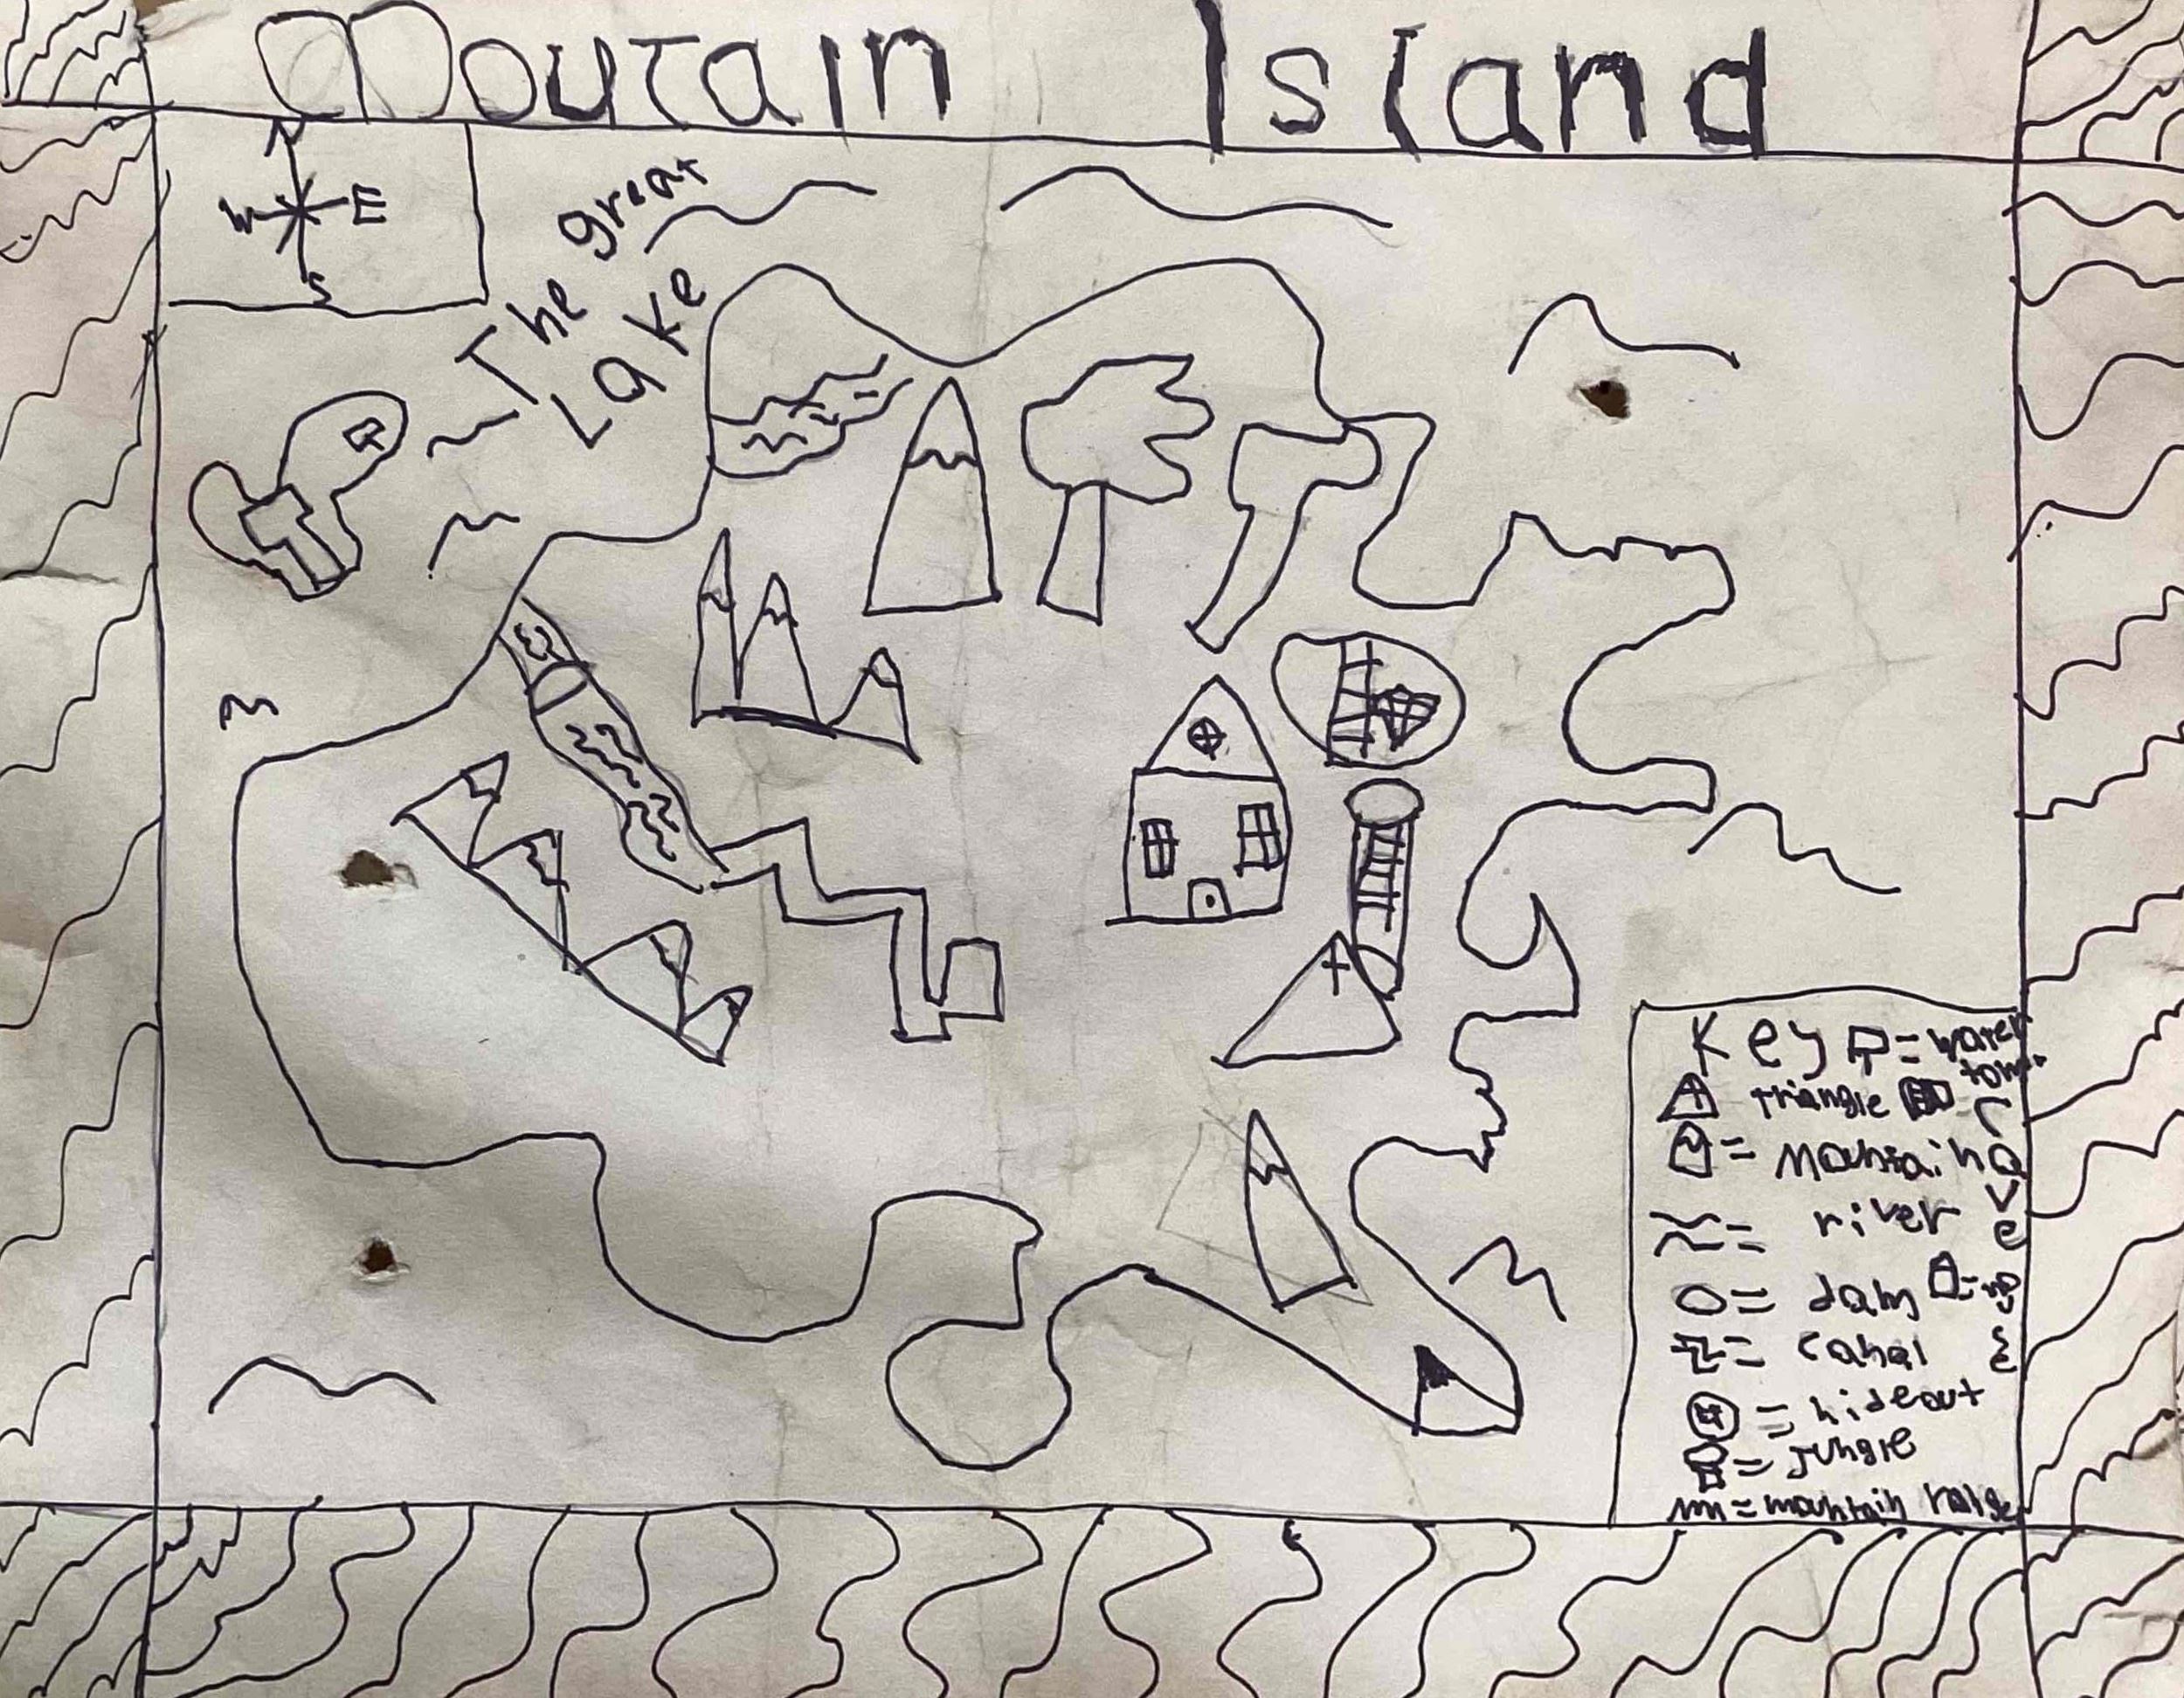 Moutain Island
N
W E
S
The great
Lake
Key = water
tower
triangle cave
= Mountain
= river
= dam
= canal
= hideout
= jungle
= mountain range